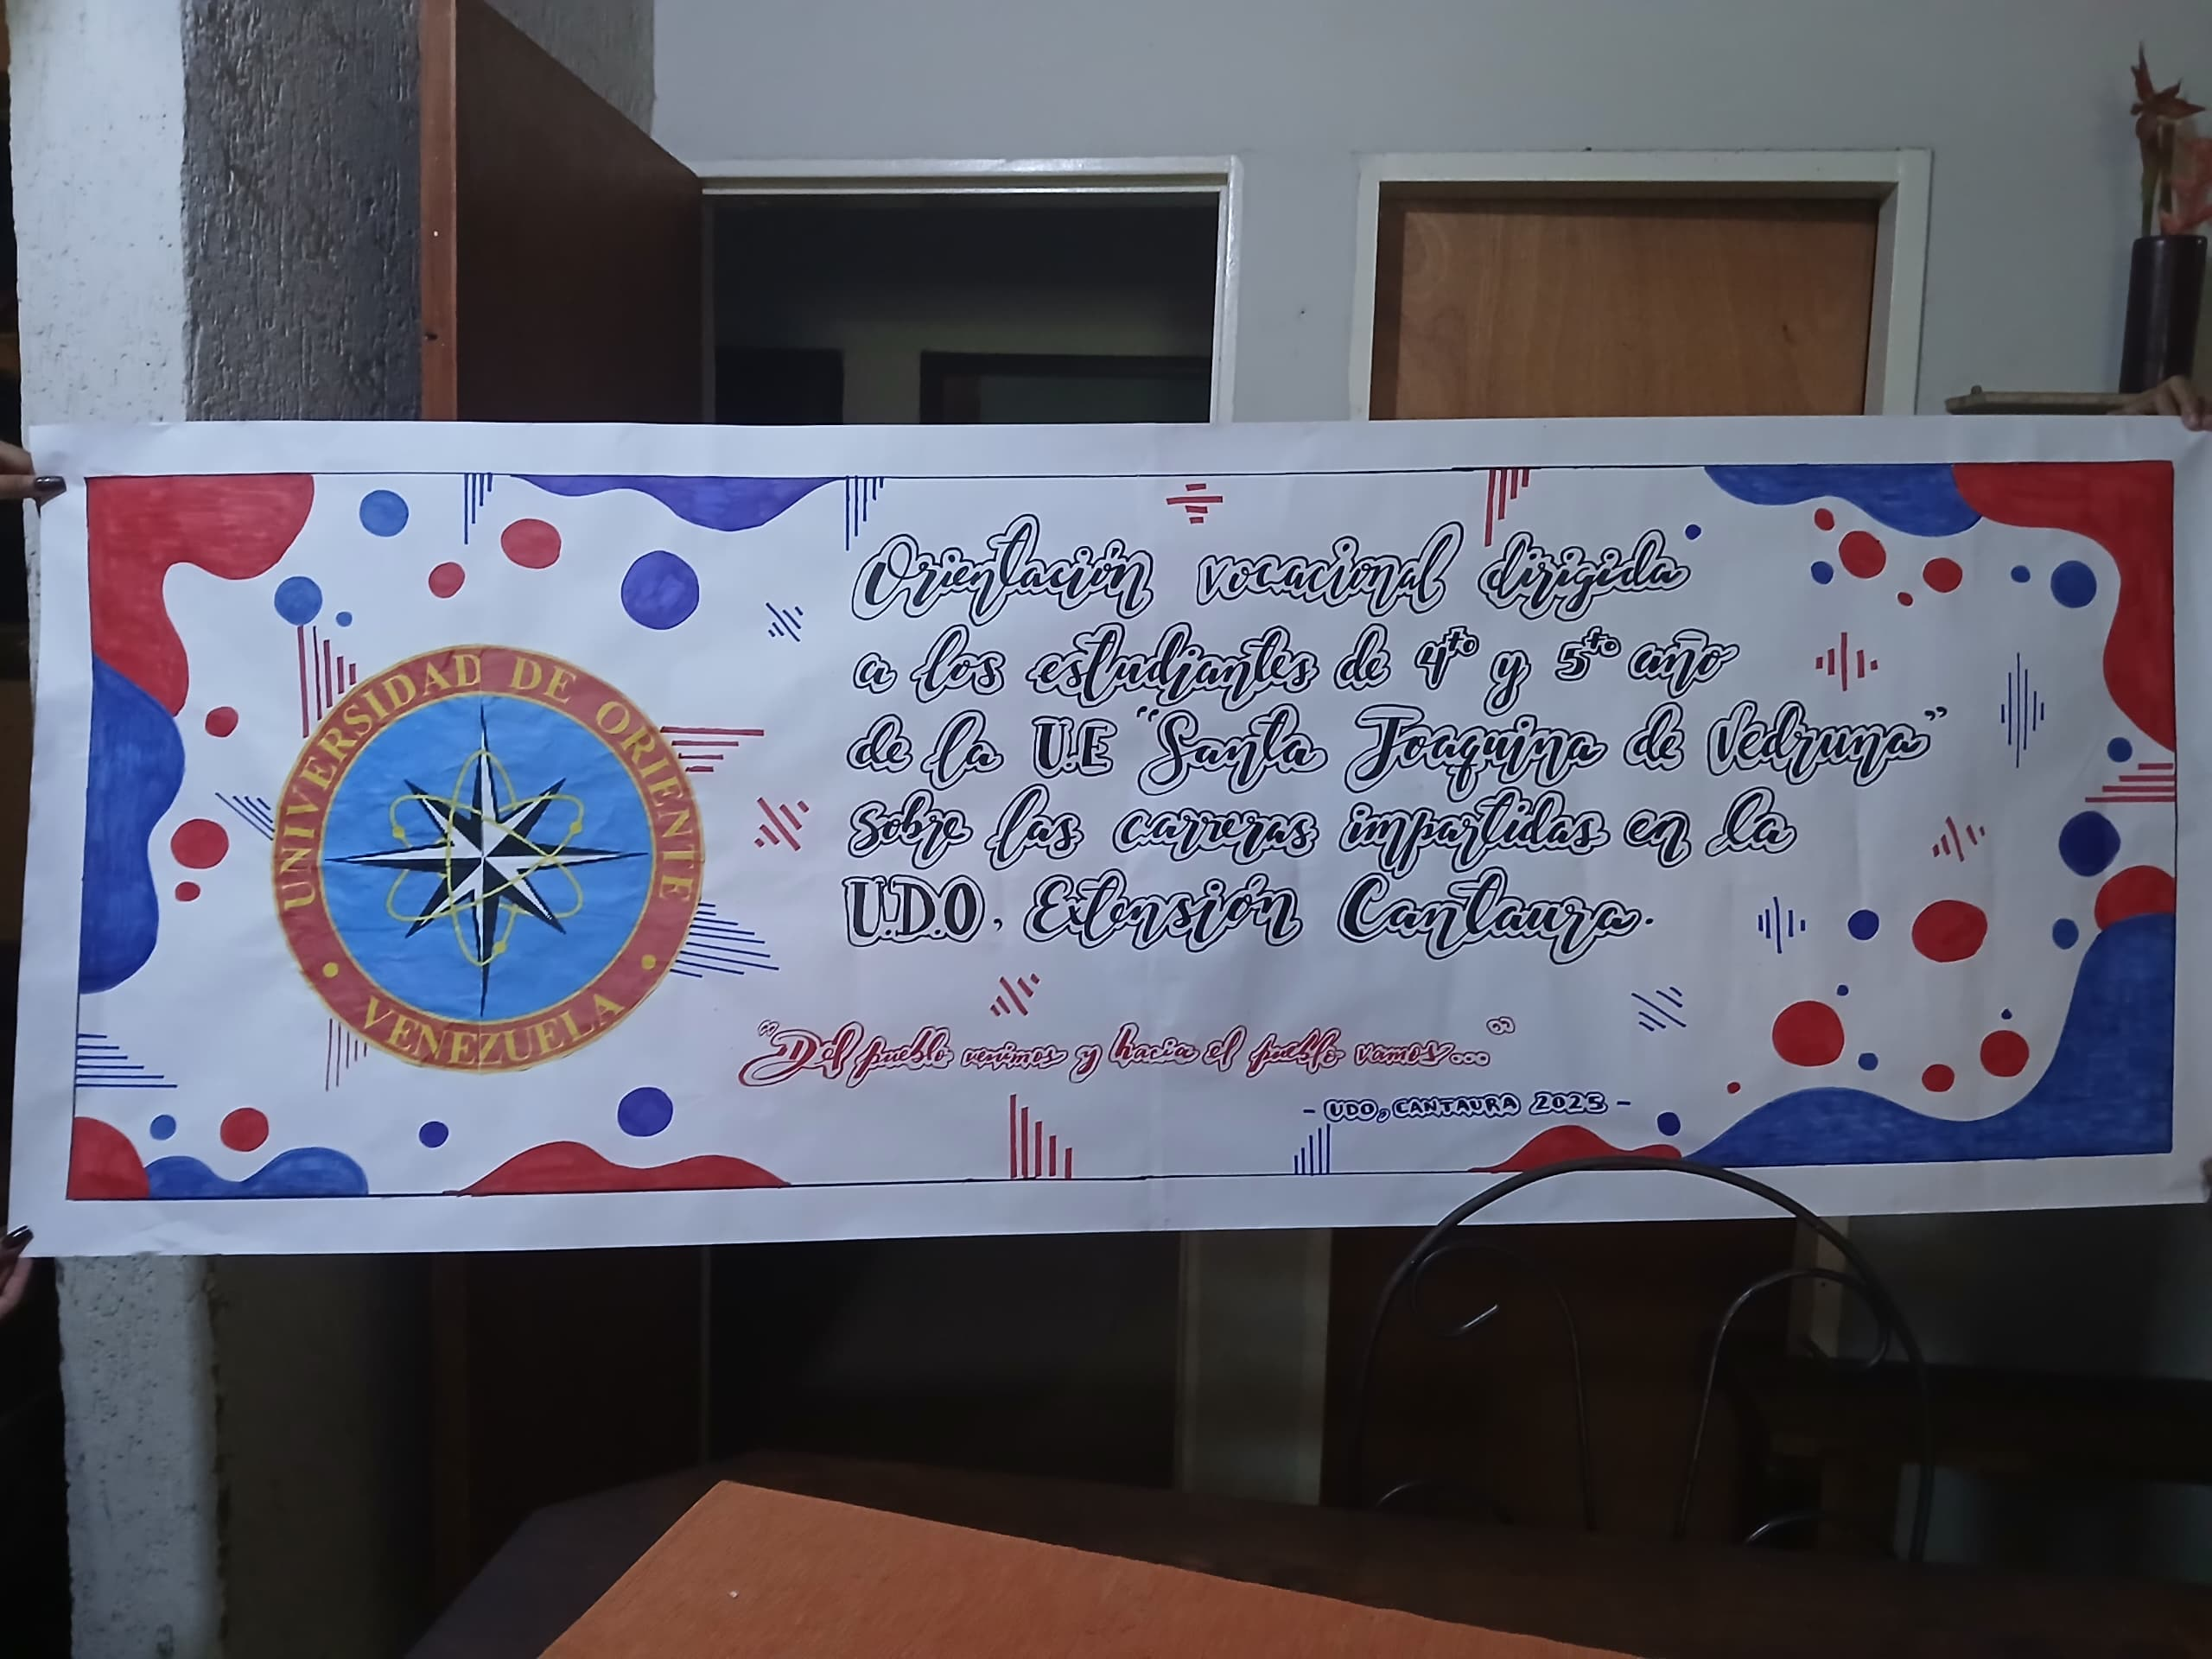 UNIVERSIDAD DE ORIENTE
VENEZUELA
Orientación vocacional dirigida
a los estudiantes de 4to y 5to año
de la U.E "Santa Joaquina de Vedruna"
sobre las carreras impartidas en la
U.D.O, Extensión Cantaura.
"Del pueblo venimos y hacia el pueblo vamos..."
- UDO, CANTAURA 2025 -